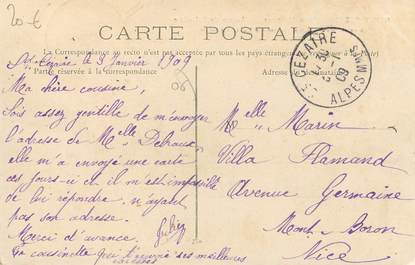 20-€
CARTE POSTALE
La Correspondance au recto n'est pas acceptée par tous les pays étrangers
Partie réservée à la correspondance
Adresse
ST CEZAIRE
ALPES MMES
09
06
le 3 Janvier 1909
Ma chère cousine,
Sois assez gentille de m'envoyer
l'adresse de Melle Delraux
elle m'a envoyé une carte
ces jours-ci et il m'est impossible
de lui répondre, n'ayant
pas son adresse.
Merci d'avance,
Ta cousinette qui t'envoie ses meilleures
caresses
Melle Marin
Villa Flamand
Avenue Germaine
Mont-Boron
Nice